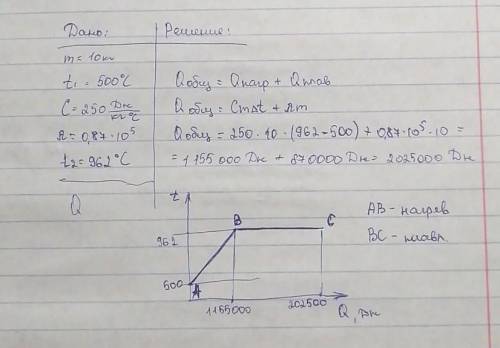 Дано:
Решение:
m = 10кг
t₁ = 500°C
C = 250 Дж/кг°C
λ = 0,87·10⁵
t₂ = 962°C
Q
Qобщ = Qнагр + Qплав
Qобщ = CmΔt + λm
Qобщ = 250·10·(962-500) + 0,87·10⁵·10 =
= 1155000 Дж + 870000 Дж = 2025000 Дж
t
B
C
962
500
A
1155000
202500
Q, Дж
AB - нагрев
BC - плавл.